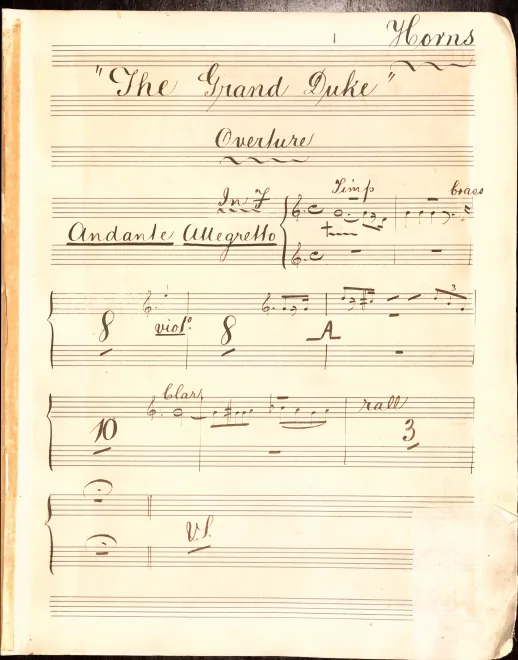 1 Horns
"The Grand Duke"
Overture
Timp brass
In F
Andante Allegretto
8 viol° 8 A 3
Clar rall
10 3
V.S.